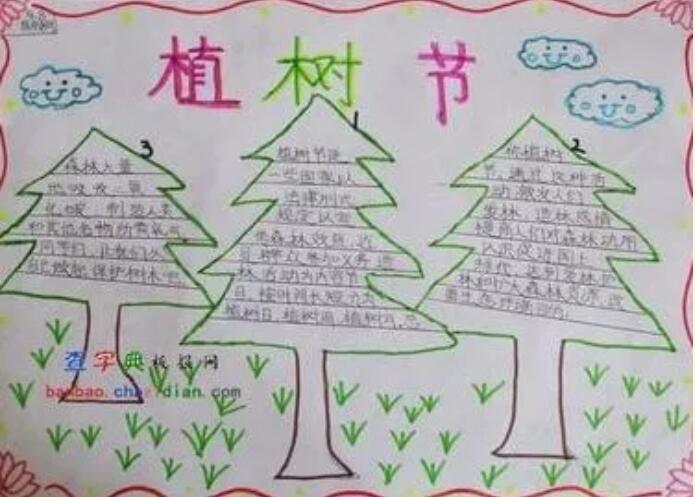 植树节
1
植树节是
一些国家以
法律形式
规定以宣
传森林效益,动
员群众参加义务造
林活动为内容的节
日,按时间长短可分为,
植树日,植树周,植树月,总
2
称植树
节,通过这种活
动,激发人们
爱林、造林感情
提高人们对森林功用
认识促进国土
绿化,达到爱林护
林和扩大森林资源,改
善生态环境目的。
3
森林大量
地吸收二氧
化碳,制造人类
和其他生物所需氧气。
同学们,让我们从
自己做起保护树木吧
查字典板报网
banbao.chazidian.com